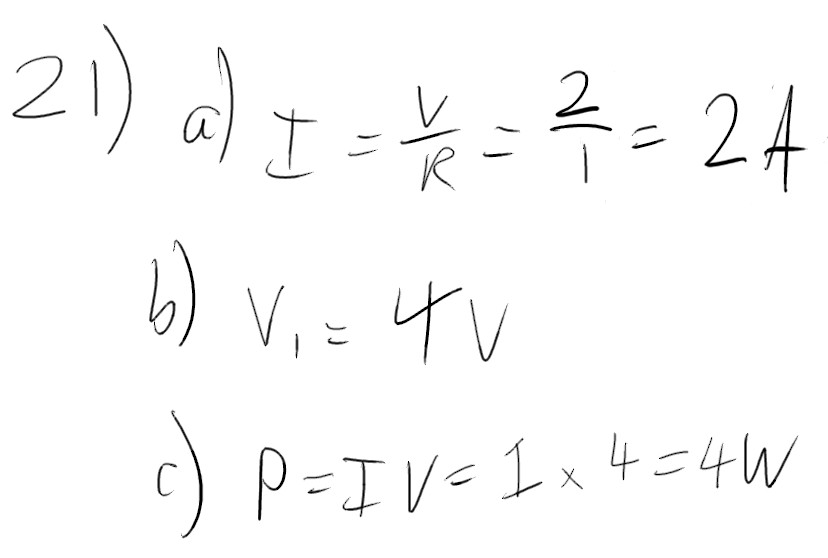 21) a) I = V/R = 2/1 = 2A
b) V₁ = 4V
c) P = IV = 1 × 4 = 4W